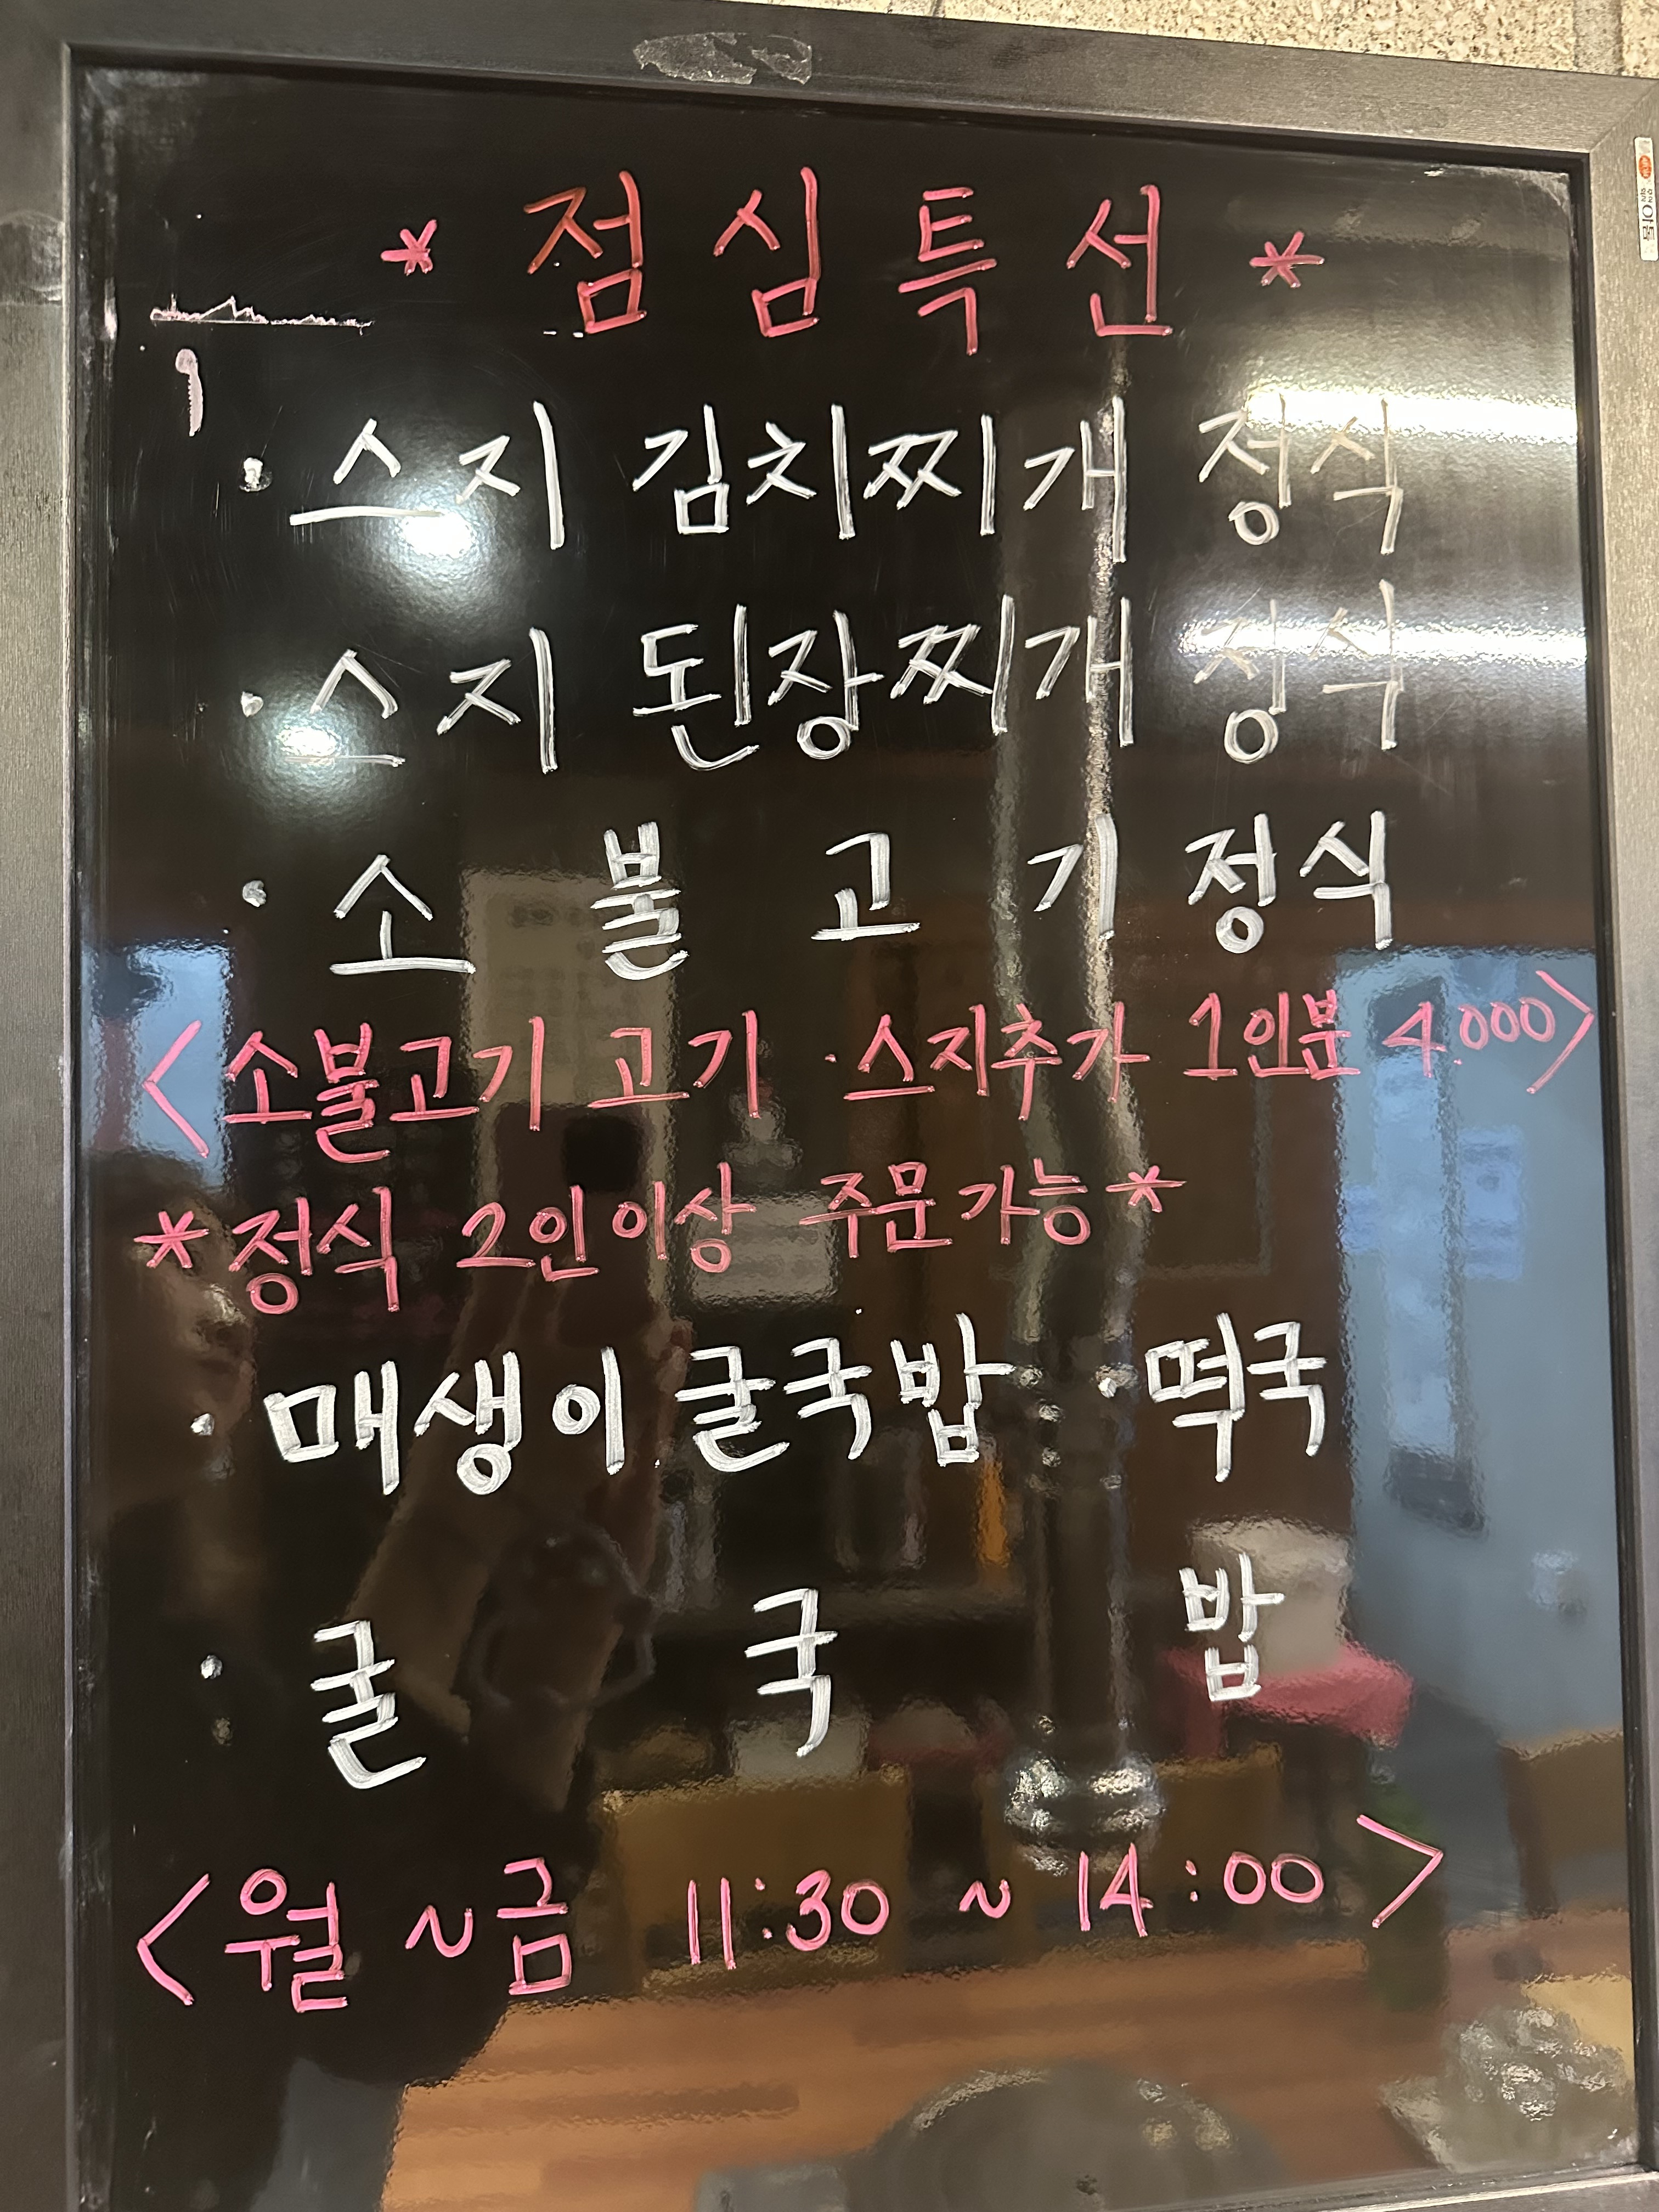 * 점심특선 *
· 스지 김치찌개 정식
· 스지 된장찌개 정식
· 소불고기 정식
<소불고기 고기 · 스지추가 1인분 4.000>
* 정식 2인이상 주문가능 *
· 매생이 굴국밥 · 떡국
· 굴국밥
<월 ~ 금 11:30 ~ 14:00>